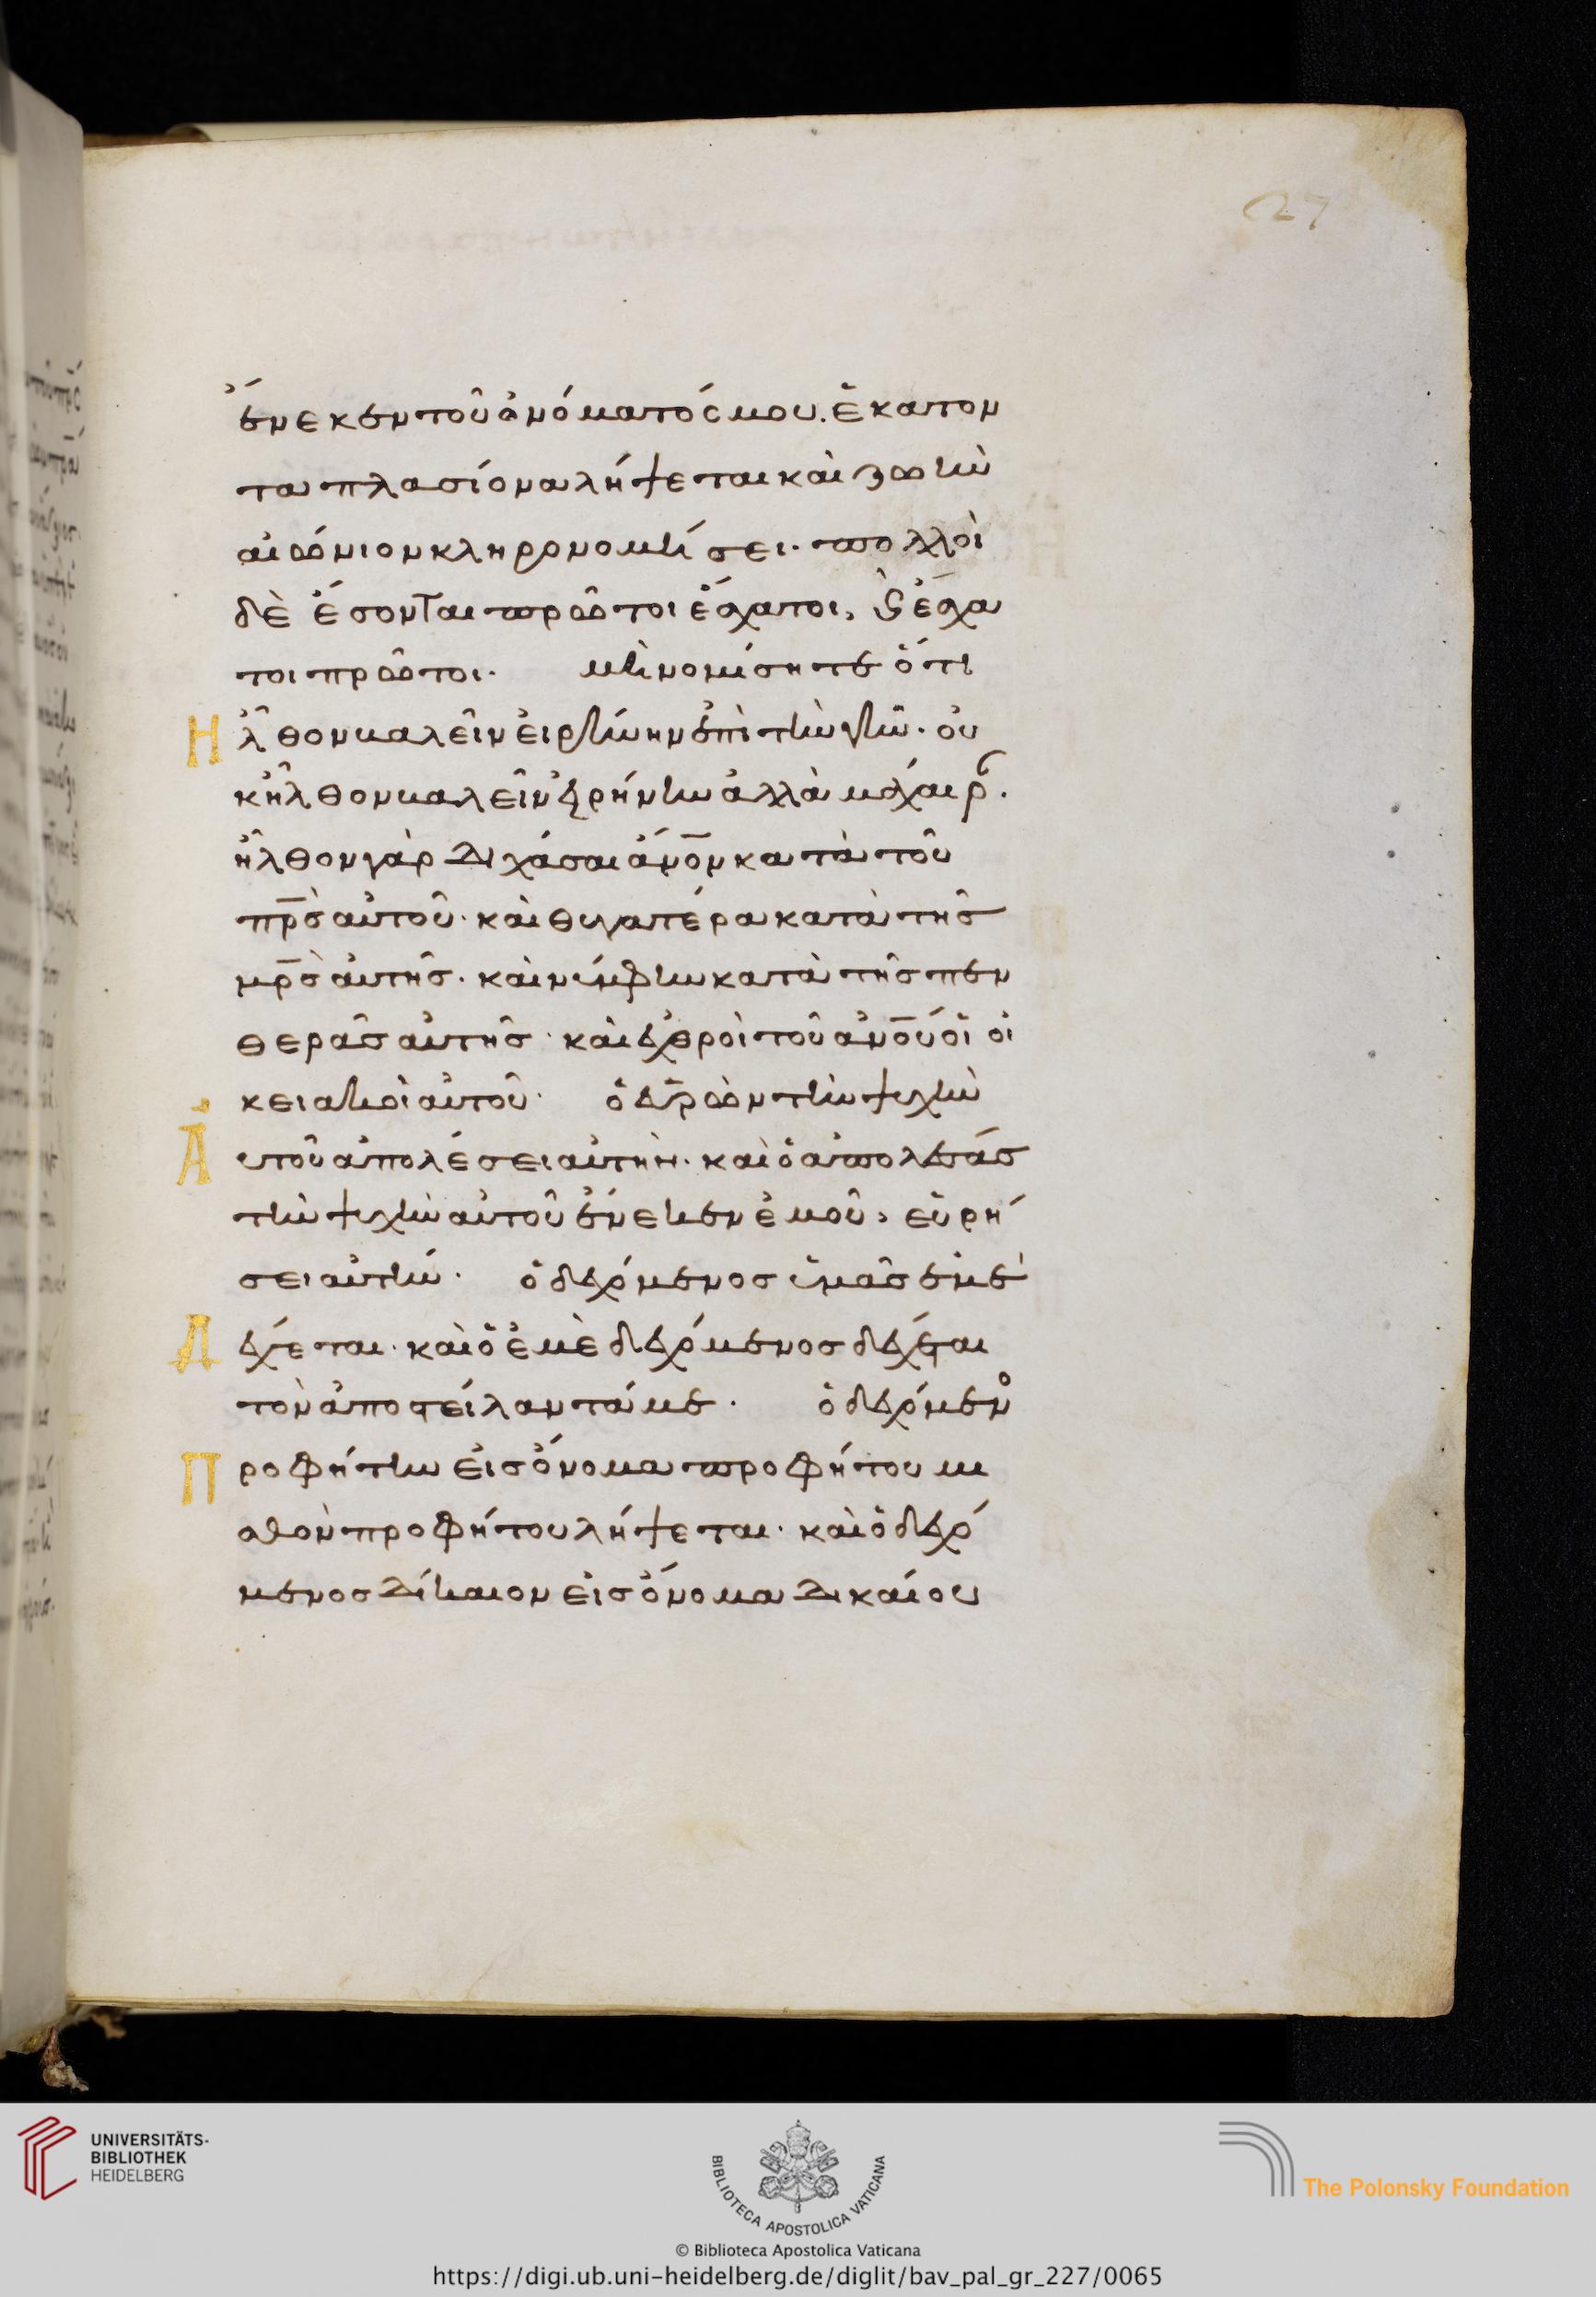 27
ἕνεκεν τοῦ ὀνόματός μου. ἑκατον
ταπλασίονα λήψεται καὶ ζωὴν
αἰώνιον κληρονομήσει. πολλοὶ
δὲ ἔσονται πρῶτοι ἔσχατοι, ϗ ἔσχα
τοι πρῶτοι. μὴ νομίσητε ὅτι
Ηλθον βαλεῖν εἰρήνην ἐπὶ τὴν γῆν. οὐ
κ ἦλθον βαλεῖν εἰρήνην ἀλλὰ μάχαιρ.
ἦλθον γὰρ διχάσαι ἄνον κατὰ τοῦ
πρς αὐτοῦ. καὶ θυγατέρα κατὰ τῆς
μρς αὐτῆς. καὶ νύμφην κατὰ τῆς πεν
θερᾶς αὐτῆς. καὶ ἐχθροὶ τοῦ ἀνου οἱ οἰ
κειακοὶ αὐτοῦ. ὁ εὑρὼν τὴν ψυχὴν
Αυτοῦ ἀπολέσει αὐτήν. καὶ ὁ ἀπολέσας
τὴν ψυχὴν αὐτοῦ ἕνεκεν ἐμοῦ, εὑρή
σει αὐτήν. ὁ δεχόμενος ὑμᾶς ἐμὲ
Δέχεται. καὶ ὁ ἐμὲ δεχόμενος δέχεται
τὸν ἀποστείλαντά με. ὁ δεχόμενο
Προφήτην εἰς ὄνομα προφήτου μι
σθὸν προφήτου λήψεται. καὶ ὁ δεχό
μενος δίκαιον εἰς ὄνομα δικαίου
UNIVERSITÄTS-
BIBLIOTHEK
HEIDELBERG
BIBLIOTECA APOSTOLICA VATICANA
The Polonsky Foundation
© Biblioteca Apostolica Vaticana
https://digi.ub.uni-heidelberg.de/diglit/bav_pal_gr_227/0065